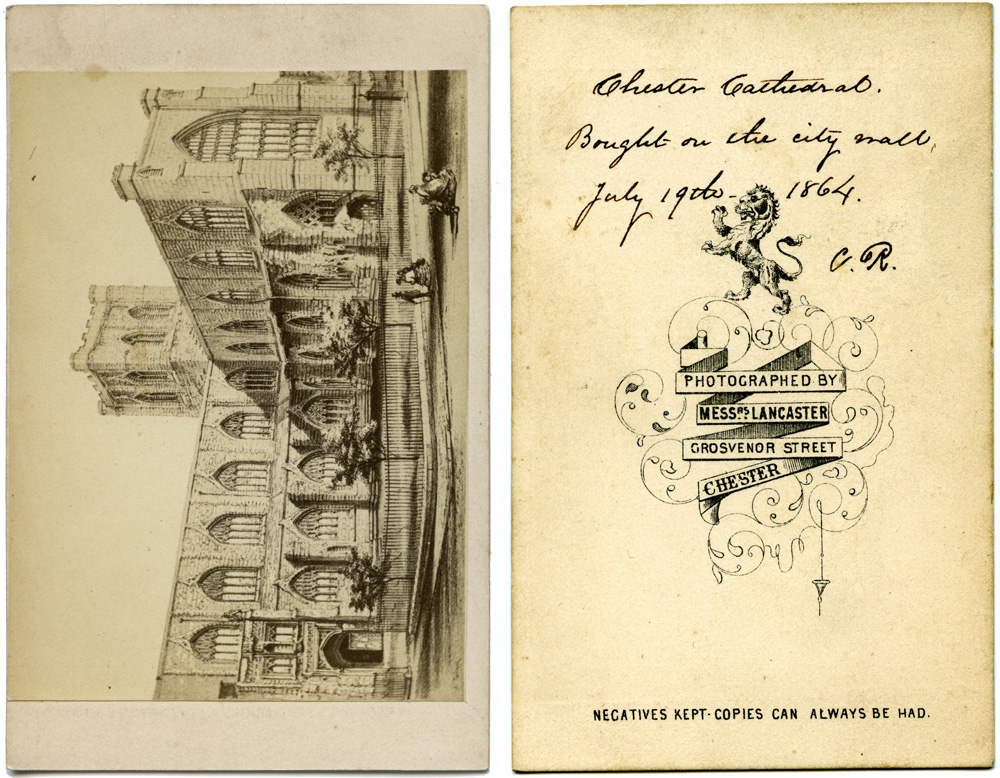 Chester Cathedral.
Bought on the city wall,
July 19th - 1864.
C. R.
PHOTOGRAPHED BY
MESSRS. LANCASTER
GROSVENOR STREET
CHESTER
NEGATIVES KEPT-COPIES CAN ALWAYS BE HAD.